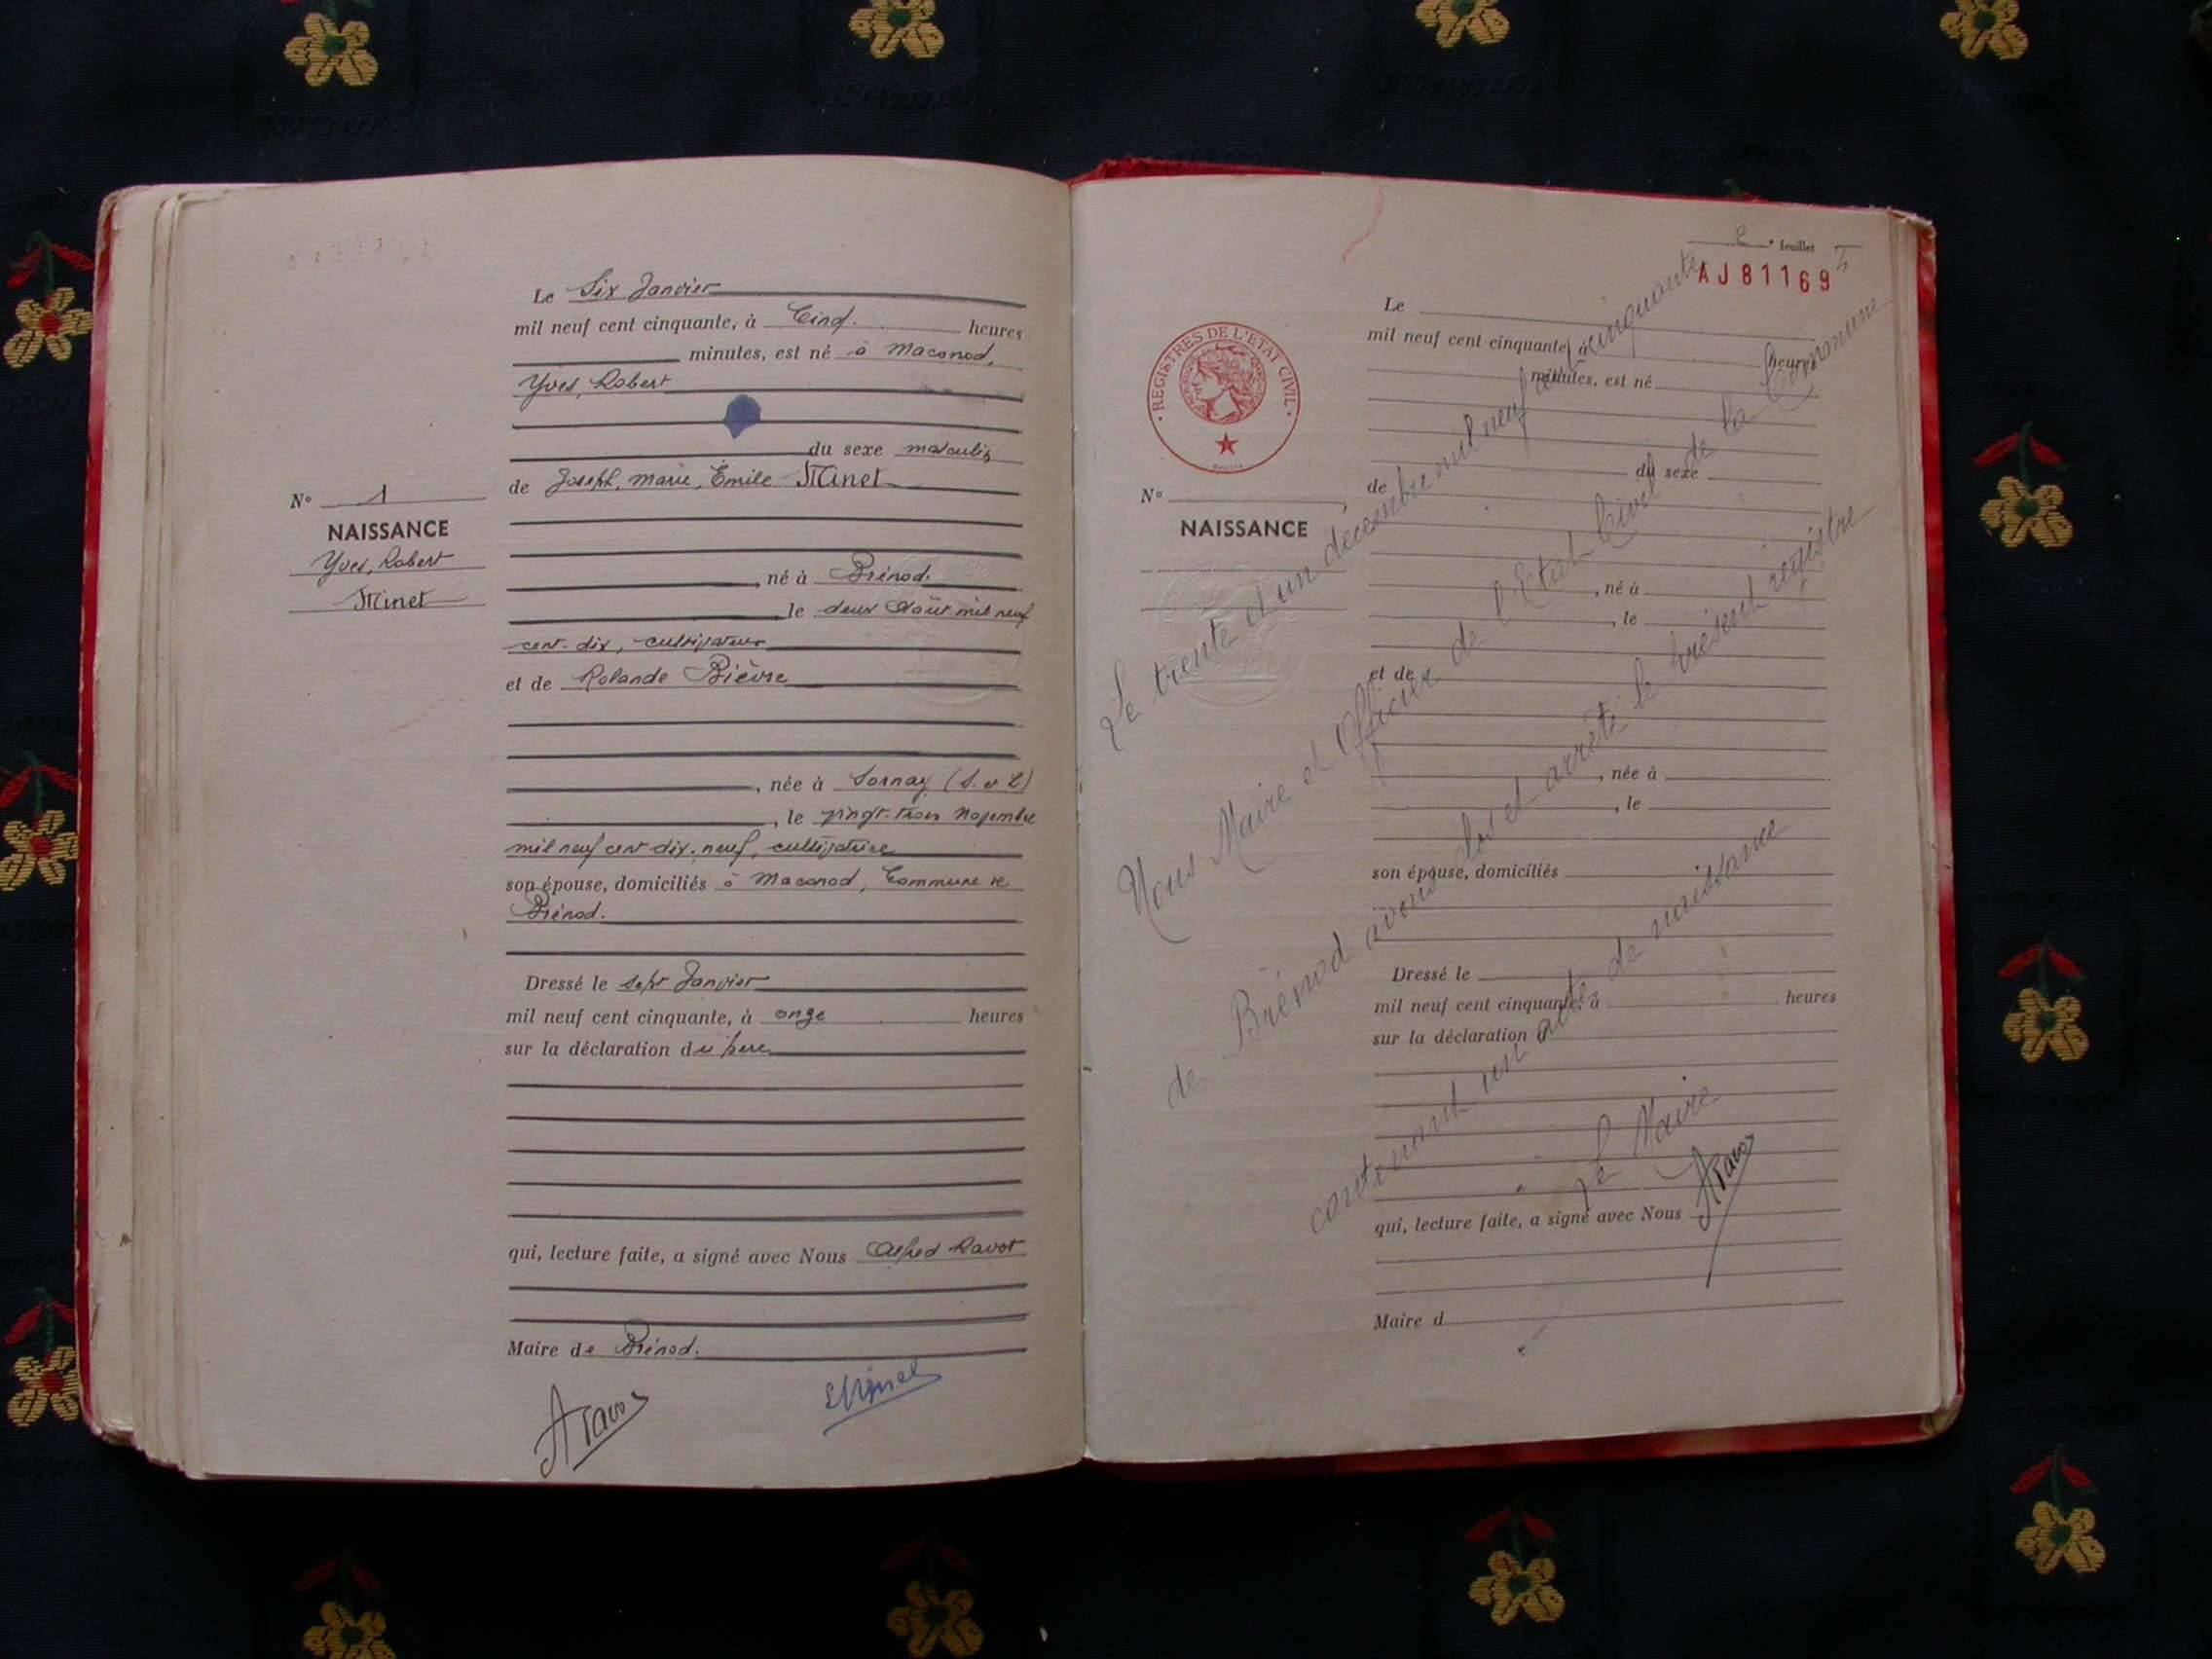 Le Six Janvier
mil neuf cent cinquante, à Cinq. heures
minutes, est né à Maconod,
Yves, Robert
du sexe masculin
N° 1
de Joseph, Marie, Émile Minet
NAISSANCE
Yves, Robert
Minet
, né à Brénod.
, le deux Août mil neuf
cent-dix, cultivateur
et de Rolande Bièvre
, née à Sornay (S. et L)
, le vingt-trois Novembre
mil neuf cent dix-neuf, cultivatrice
son épouse, domiciliés à Maconod, Commune de
Brénod.
Dressé le sept Janvier
mil neuf cent cinquante, à onze heures
sur la déclaration du père
qui, lecture faite, a signé avec Nous Alfred Ravot
Maire de Brénod.
ARavot
Minet
e feuillet
AJ81169
REGISTRES DE L'ETAT CIVIL
Le
mil neuf cent cinquante, à heures
minutes, est né
du sexe
N°
de
NAISSANCE
, né à
, le
et de
, née à
, le
son épouse, domiciliés
Dressé le
mil neuf cent cinquante, à heures
sur la déclaration d
qui, lecture faite, a signé avec Nous
Maire d
Le trente et un décembre mil neuf cent cinquante
Nous Maire et Officier de l'Etat Civil de la Commune
de Brénod avons clos et arrêté le présent registre
contenant un acte de naissance
Le Maire
ARavot